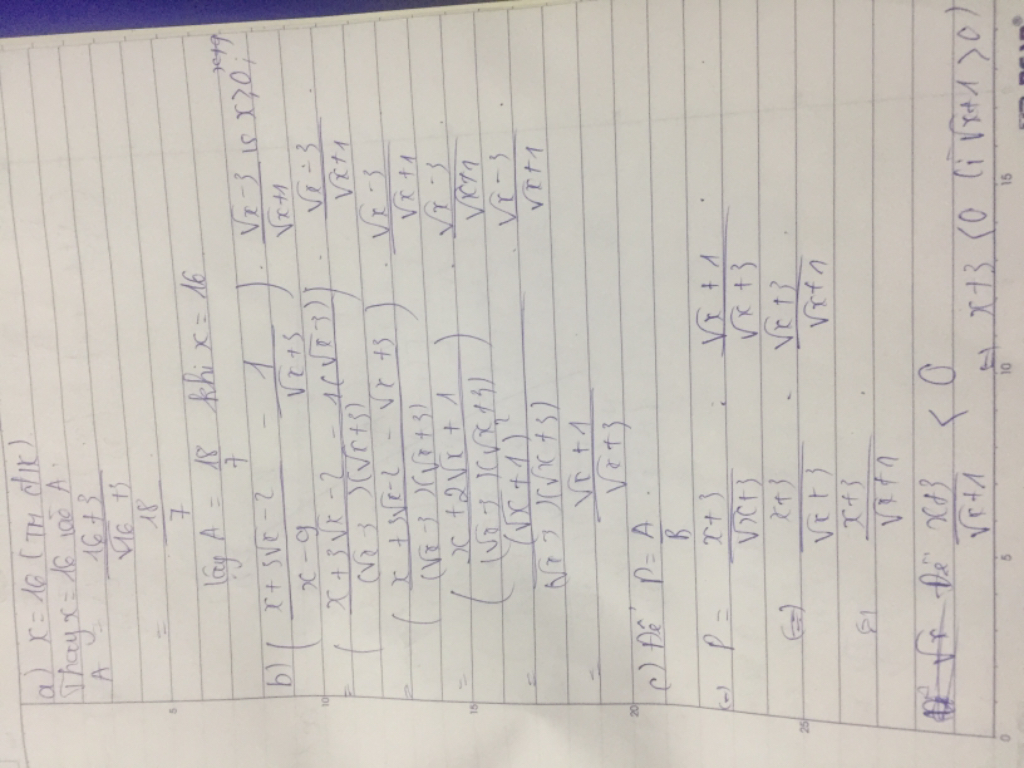 a) x = 16 (TM đk)
Thay x = 16 vào A
A = (16 + 3)/(√16 + 3)
= 18/7
Vậy A = 18/7 khi x = 16
b) ((x + 3√x - 2)/(x - 9) - 1/(√x + 3)) . (√x - 3)/(√x + 1) x ≥ 0;
= ((x + 3√x - 2 - 1(√x - 3))/((√x - 3)(√x + 3))) . (√x - 3)/(√x + 1)
= ((x + 3√x - 2 - √x + 3)/((√x - 3)(√x + 3))) . (√x - 3)/(√x + 1)
= ((x + 2√x + 1)/((√x - 3)(√x + 3))) . (√x - 3)/(√x + 1)
= (√x + 1)²/((√x - 3)(√x + 3)) . (√x - 3)/(√x + 1)
= (√x + 1)/(√x + 3)
c) Để P = A/B
(=) P = (x + 3)/(√x + 3) : (√x + 1)/(√x + 3)
(=) (x + 3)/(√x + 3) . (√x + 3)/(√x + 1)
(=) (x + 3)/(√x + 1)
Để (x + 3)/(√x + 1) < 0
(=) x + 3 < 0 (√x + 1 > 0)
0 5 10 15
5 10 15 20 25